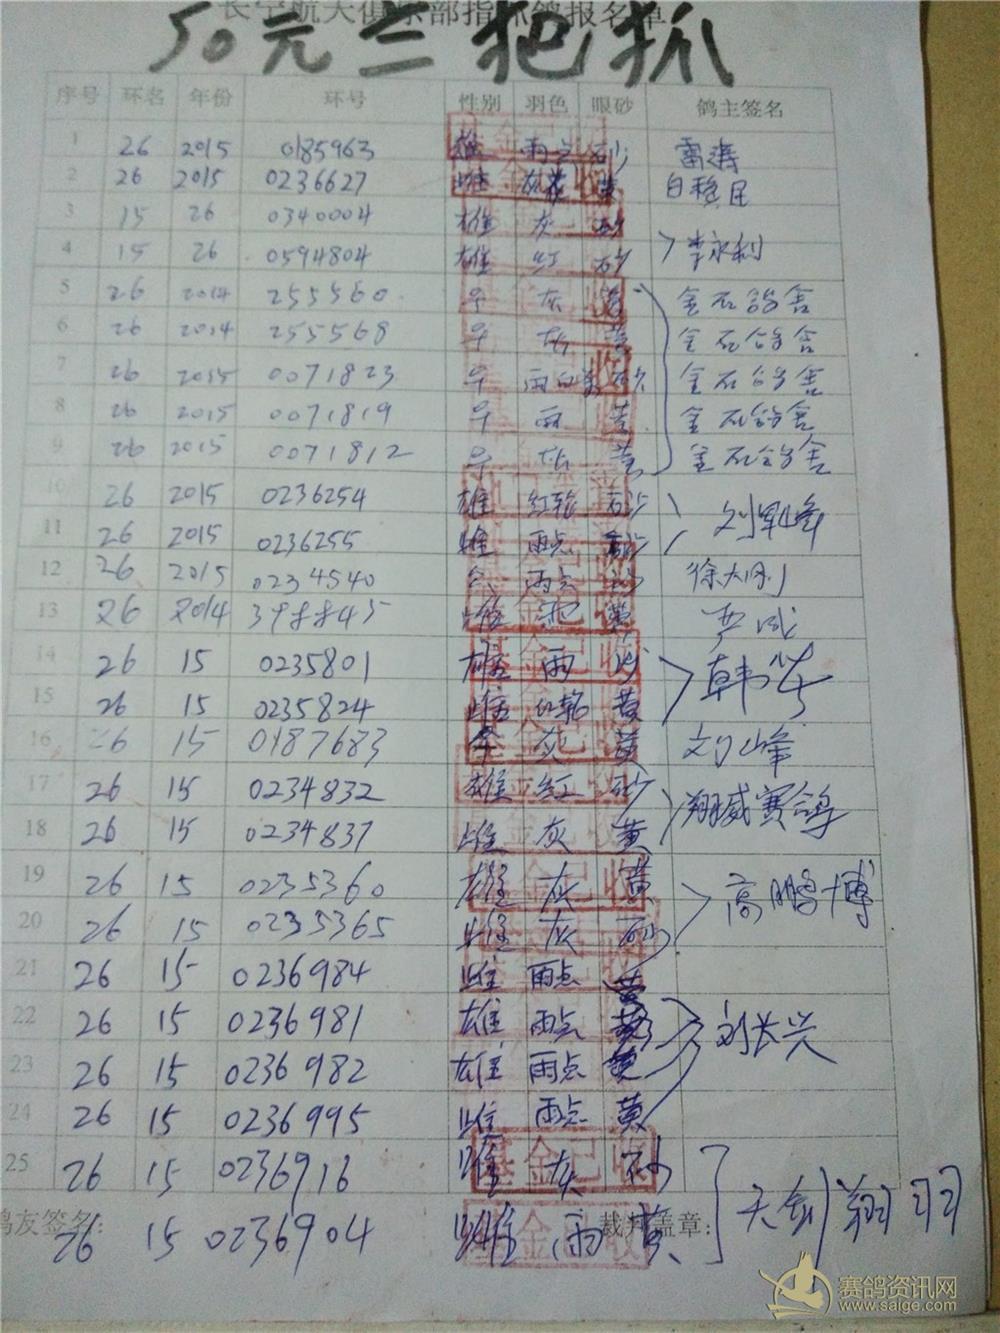 长宁航天俱乐部指环鸽报名单
50元三把抓
序号 环名 年份 环号 性别 羽色 眼砂 鸽主签名
1 26 2015 0185963 雄 雨白 砂 雷涛
2 26 2015 0236627 雌 灰花 黄 白稳民
3 15 26 0340004 雄 灰 砂
4 15 26 0594804 雄 红 砂 李永利
5 26 2014 255560 灰 黄 金石鸽舍
6 26 2014 255568 灰 黄 金石鸽舍
7 26 2015 0071823 雨白 砂 金石鸽舍
8 26 2015 0071819 雨 黄 金石鸽舍
9 26 2015 0071812 灰 黄 金石鸽舍
10 26 2015 0236254 雄 红轮 砂
11 26 2015 0236255 雌 雨点 砂 刘军峰
12 26 2015 0234540 雨点 砂 徐大刚
13 26 2014 398845 雌 黄 严成
14 26 15 0235801 雄 雨 砂
15 26 15 0235824 雌 红轮 黄 韩华
16 26 15 0187683 灰 黄 刘峰
17 26 15 0234832 雄 红 砂
18 26 15 0234837 雌 灰 黄 翔威赛鸽
19 26 15 0235360 雄 灰 黄
20 26 15 0235365 雌 灰 砂 高鹏博
21 26 15 0236984 雌 雨点 黄
22 26 15 0236981 雄 雨点 黄 刘长兴
23 26 15 0236982 雄 雨点 黄
24 26 15 0236995 雌 雨点 黄
25 26 15 0236916 雌 灰 砂
鸽友签名: 裁判盖章:
26 15 0236904 雌 雨 黄 天剑翔羽
基金已收
赛鸽资讯网
www.saige.com